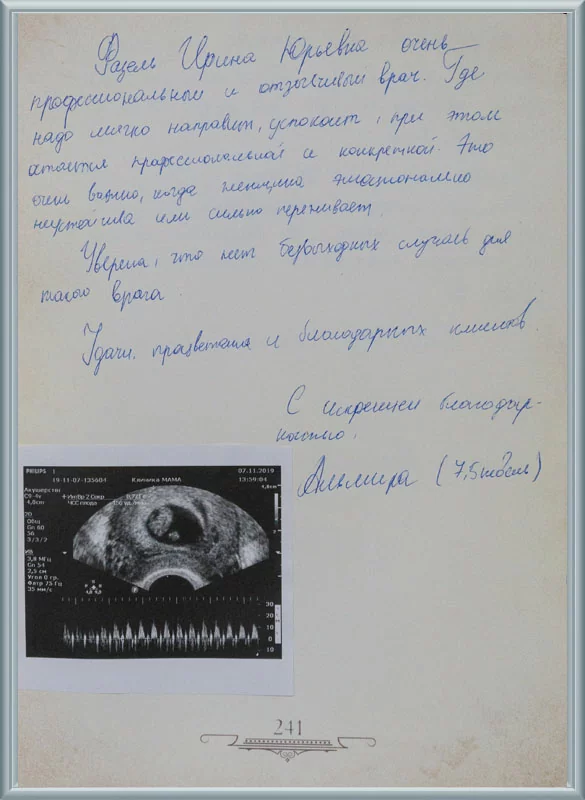 Фазель Ирина Юрьевна очень
профессиональный и отзывчивый врач. Где
надо мягко направит, успокоит, при этом
остаётся профессиональной и конкретной. Это
очень важно, когда женщина эмоционально
неустойчива или сильно переживает.
Уверена, что нет безвыходных случаев для
такого врача.
Удачи, процветания и благодарных клиентов.
С искренней благодар-
ностью,
Альмира (7,5 недель)
PHILIPS
19-11-07-135604 Клиника МАМА 07.11.2019
13:59:04
Акушерство
C9-4v
4,0см
4,0см
+ИнтВр 2 Сокр
ЧСС плода 156 уд/м
2D
Общ
Gn 60
56
3/3/2
2,8 МГц
Gn 54
2,5 см
Угол 0 гр.
Фильтр 75 Гц
35 мм/с
30
20
10
0
10
241